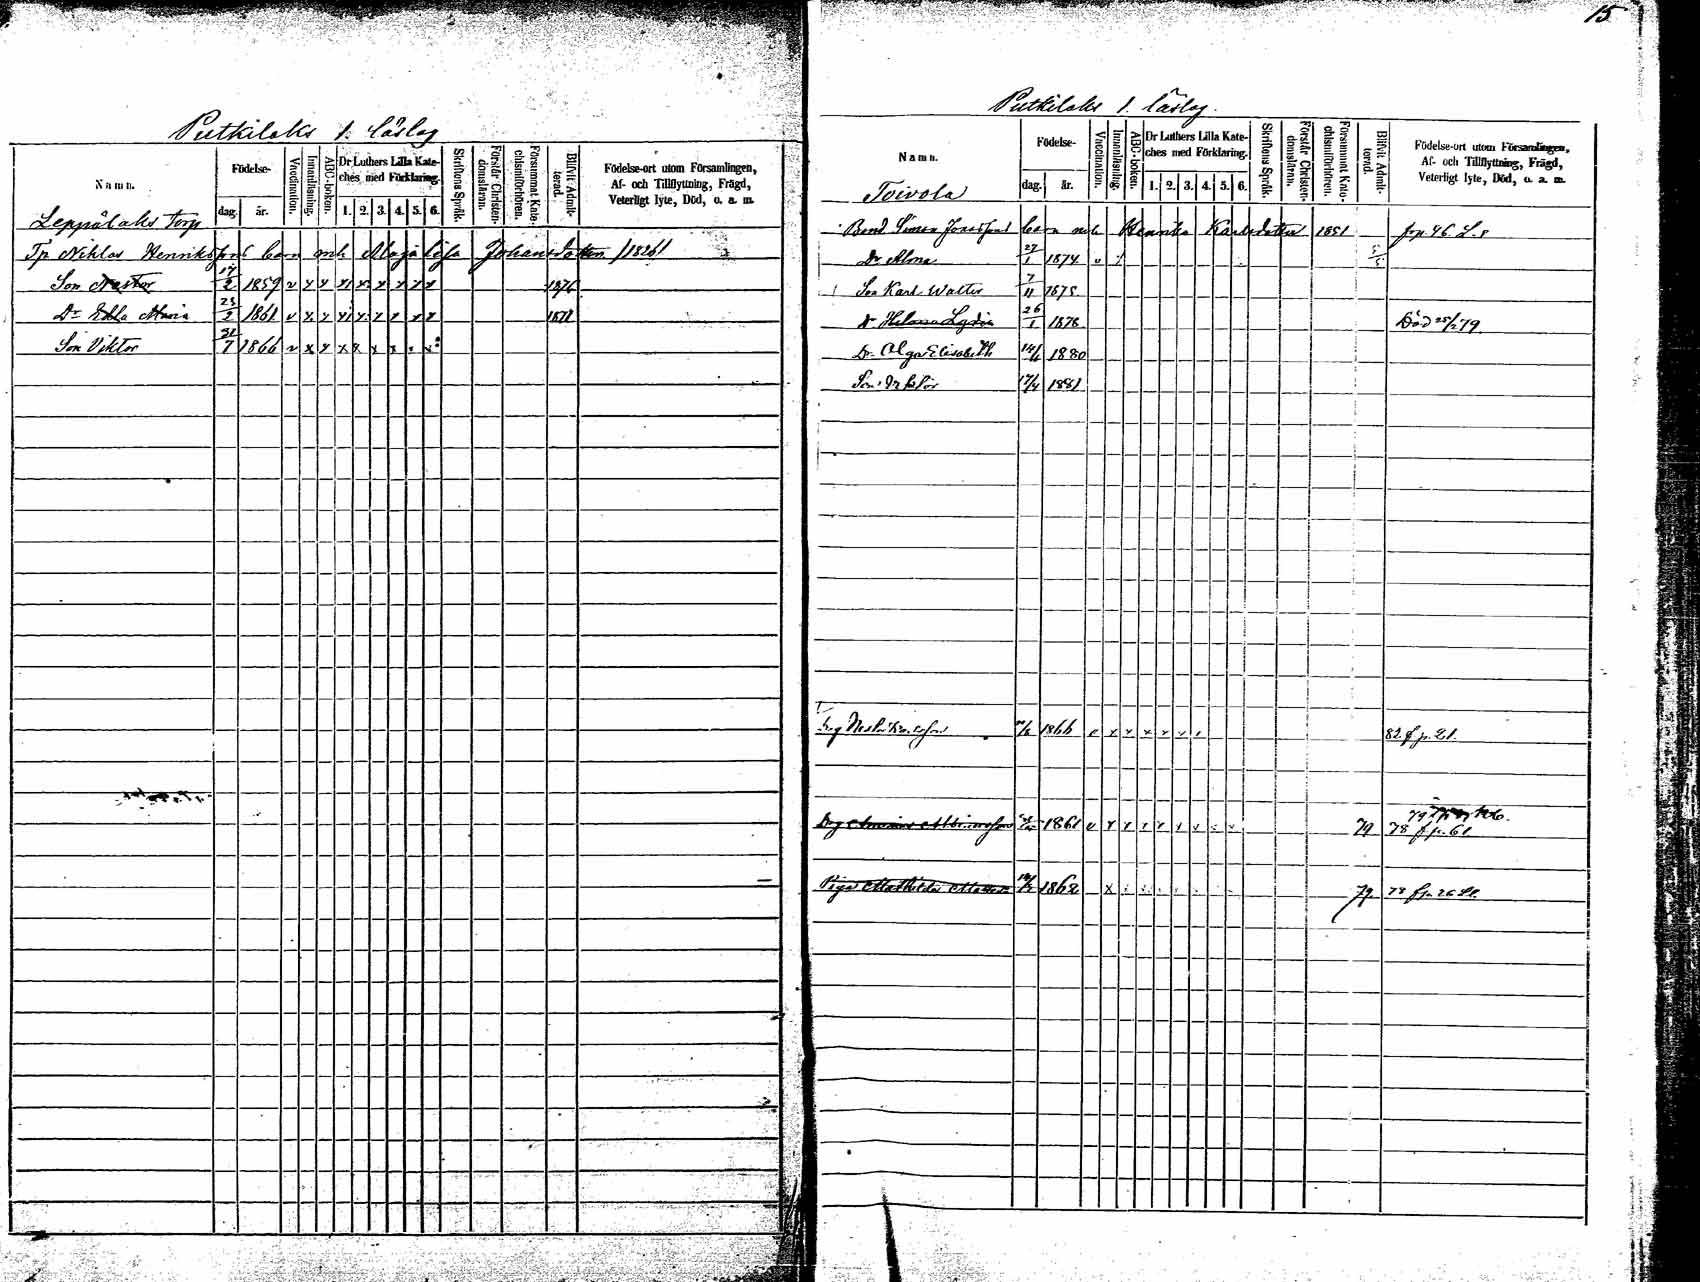 Putkilaks 1. läslag
Namn. Födelse- dag. år. Vaccination. Innanläsning. ABC-boken. Dr Luthers Lilla Kateches med Förklaring. 1. 2. 3. 4. 5. 6. Skriftens Språk. Förstår Christendomsläran. Försummat Katechismiförhören. Blifvit Admitterad. Födelse-ort utom Församlingen, Af- och Tillflyttning, Frägd, Veterligt lyte, Död, o. a. m.
Leppälaks torp
Tp Niklas Henriksson barn mh Maja Lisa Johansdotter /1826/
Son Nestor 17/2 1859 v x x x x x x x x 1876
Dr Edla Maria 23/2 1861 v x x x x x x x x 1878
Son Viktor 31/7 1866 v x x x x x x . x
15
Putkilaks 1. läslag.
Namn. Födelse- dag. år. Vaccination. Innanläsning. ABC-boken. Dr Luthers Lilla Kateches med Förklaring. 1. 2. 3. 4. 5. 6. Skriftens Språk. Förstår Christendomsläran. Försummat Katechismiförhören. Blifvit Admitterad. Födelse-ort utom Församlingen, Af- och Tillflyttning, Frägd, Veterligt lyte, Död, o. a. m.
Toivola
Bond Simon Jonasson barn mh Henrika Karlsdotter 1851
Dr Alma 27/1 1874 v
Son Karl Walter 7/11 1875
Dr Helena Lydia 26/1 1878 Död 25/2 79
Dr Olga Elisabeth 1880
Son 17/4 1881
1866 v x x x x x 82 f p. 21.
Drg 1861 v x x x x x x 79 78 f p. 61
Piga Mathilda 1862 x 79 78 f p. 26